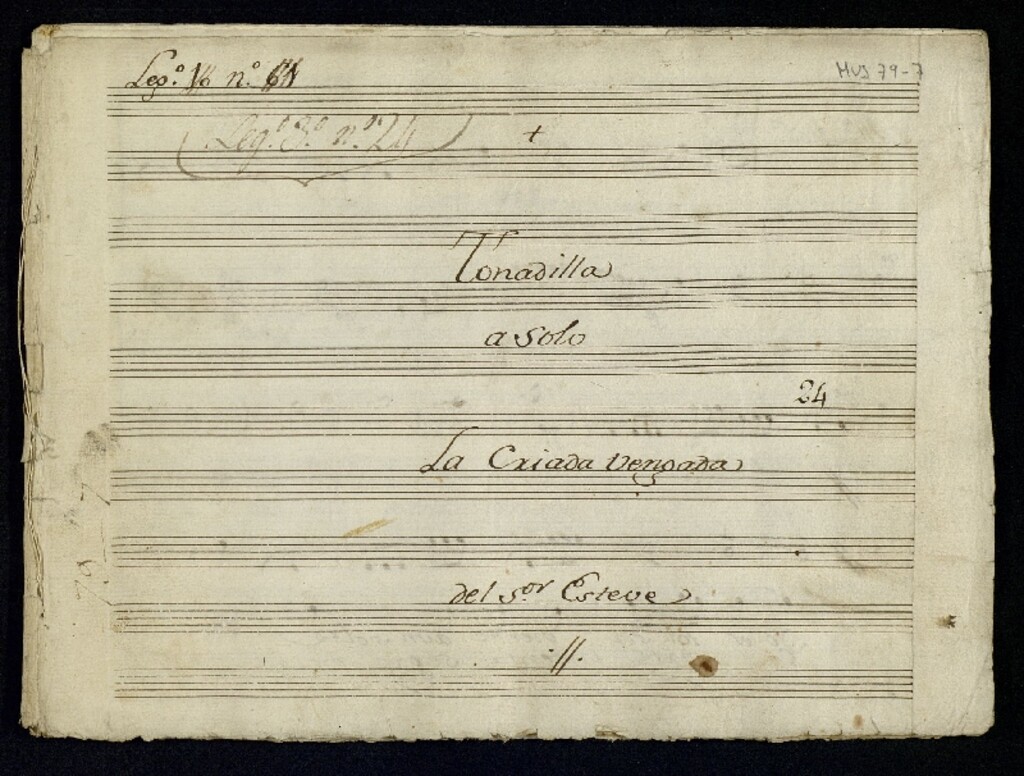 Leg.º 16 n.º
MUS 79-7
Leg.º 3.º n.º 24
+
Tonadilla
a Solo
24
La Criada Vengada
del S.or Esteve
.//.